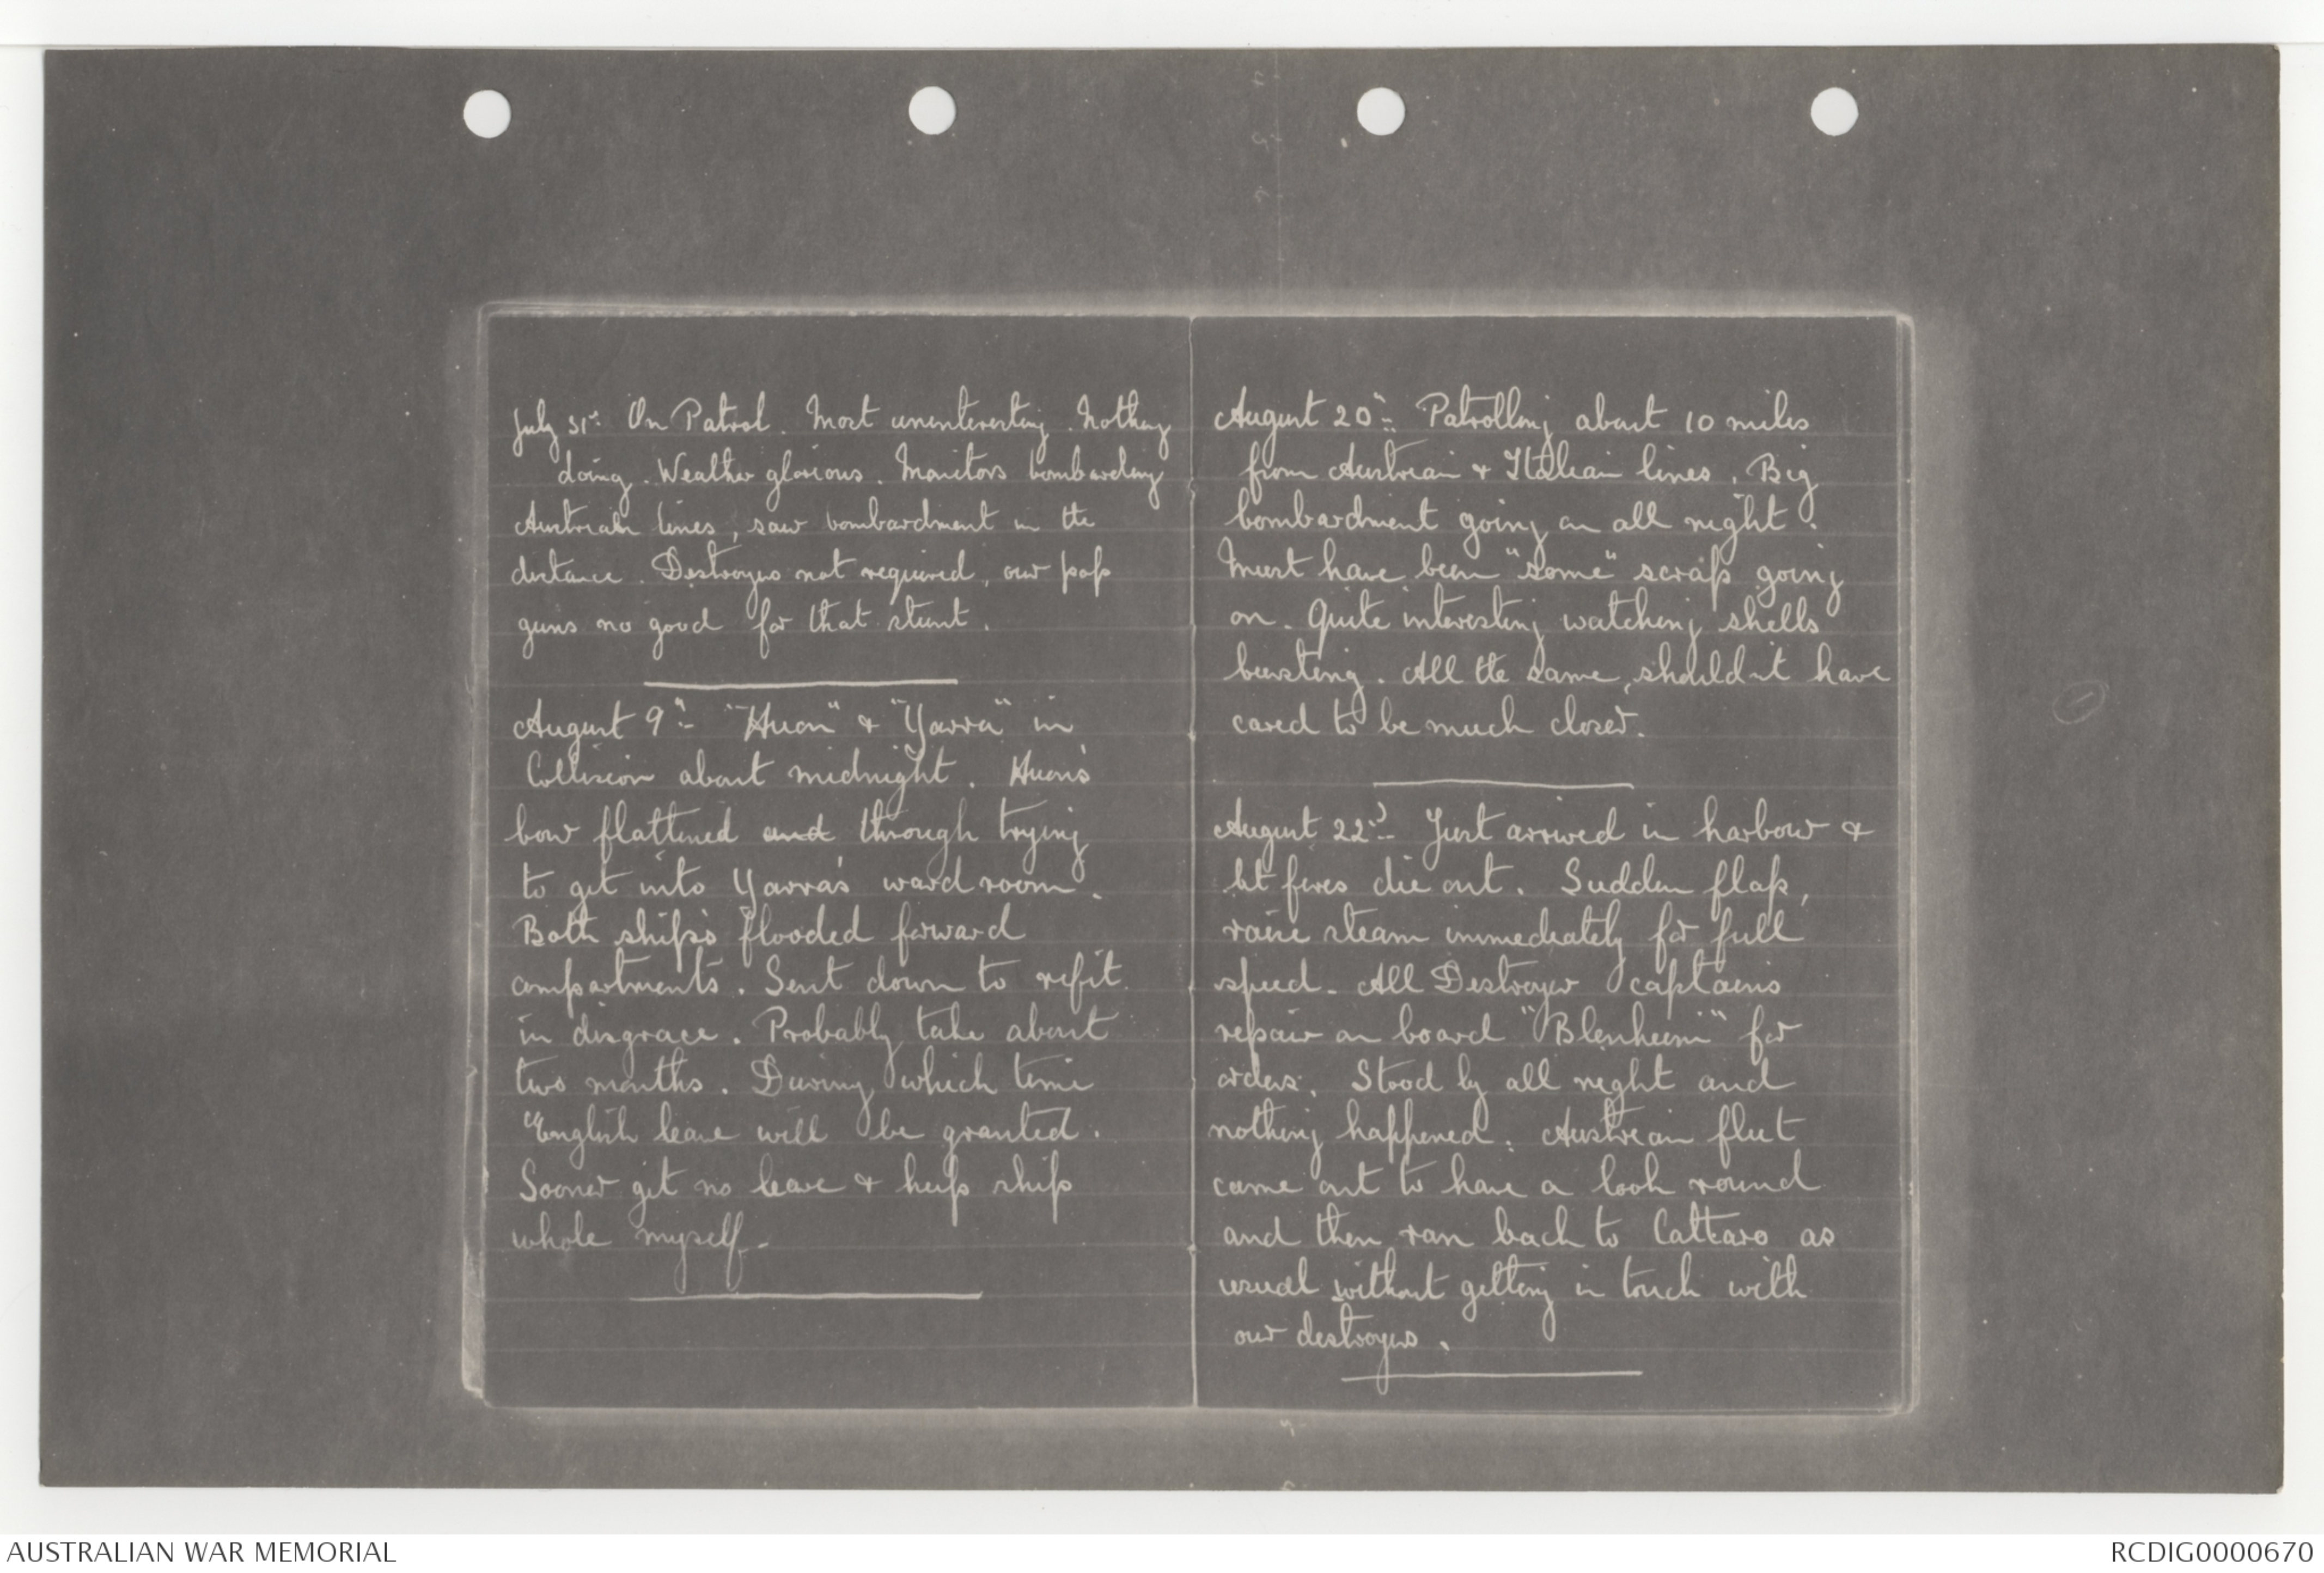 July 31st On Patrol. Most uninteresting. Nothing
doing. Weather glorious. Monitors bombarding
Austrian lines, saw bombardment in the
distance. Destroyers not required, our pop
guns no good for that stunt.
August 9th "Huon" & "Yarra" in
Collision about midnight. Huon's
bow flattened and through trying
to get into Yarra's ward room.
Both ships flooded forward
compartments. Sent down to refit
in disgrace. Probably take about
two months. During which time
English leave will be granted.
Sooner get no leave & keep ship
whole myself.
August 20th Patrolling about 10 miles
from Austrian & Italian lines. Big
bombardment going on all night.
Must have been "some" scrap going
on. Quite interesting watching shells
bursting. All the same, shouldn't have
cared to be much closer.
August 22nd Just arrived in harbour &
let fires die out. Sudden flap,
raise steam immediately for full
speed. All Destroyer captains
repair on board "Blenheim" for
orders. Stood by all night and
nothing happened. Austrian fleet
came out to have a look round
and then ran back to Cattaro as
usual without getting in touch with
our destroyers.
AUSTRALIAN WAR MEMORIAL
RCDIG0000670